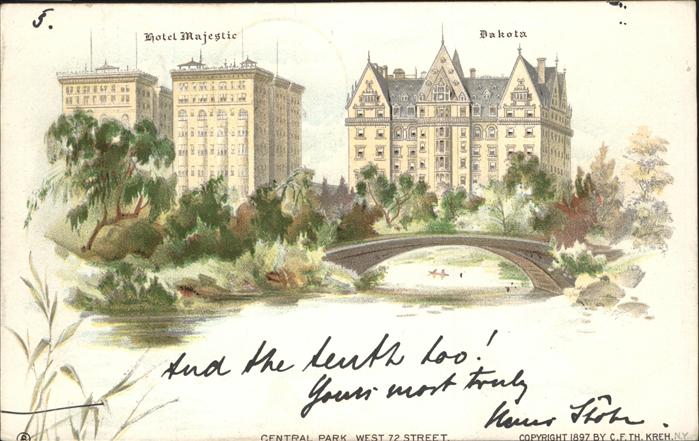 5.
Hotel Majestic
Dakota
And the tenth too!
Yours most truly
CENTRAL PARK, WEST 72 STREET.
COPYRIGHT 1897 BY C. F. TH. KREH, N.Y.